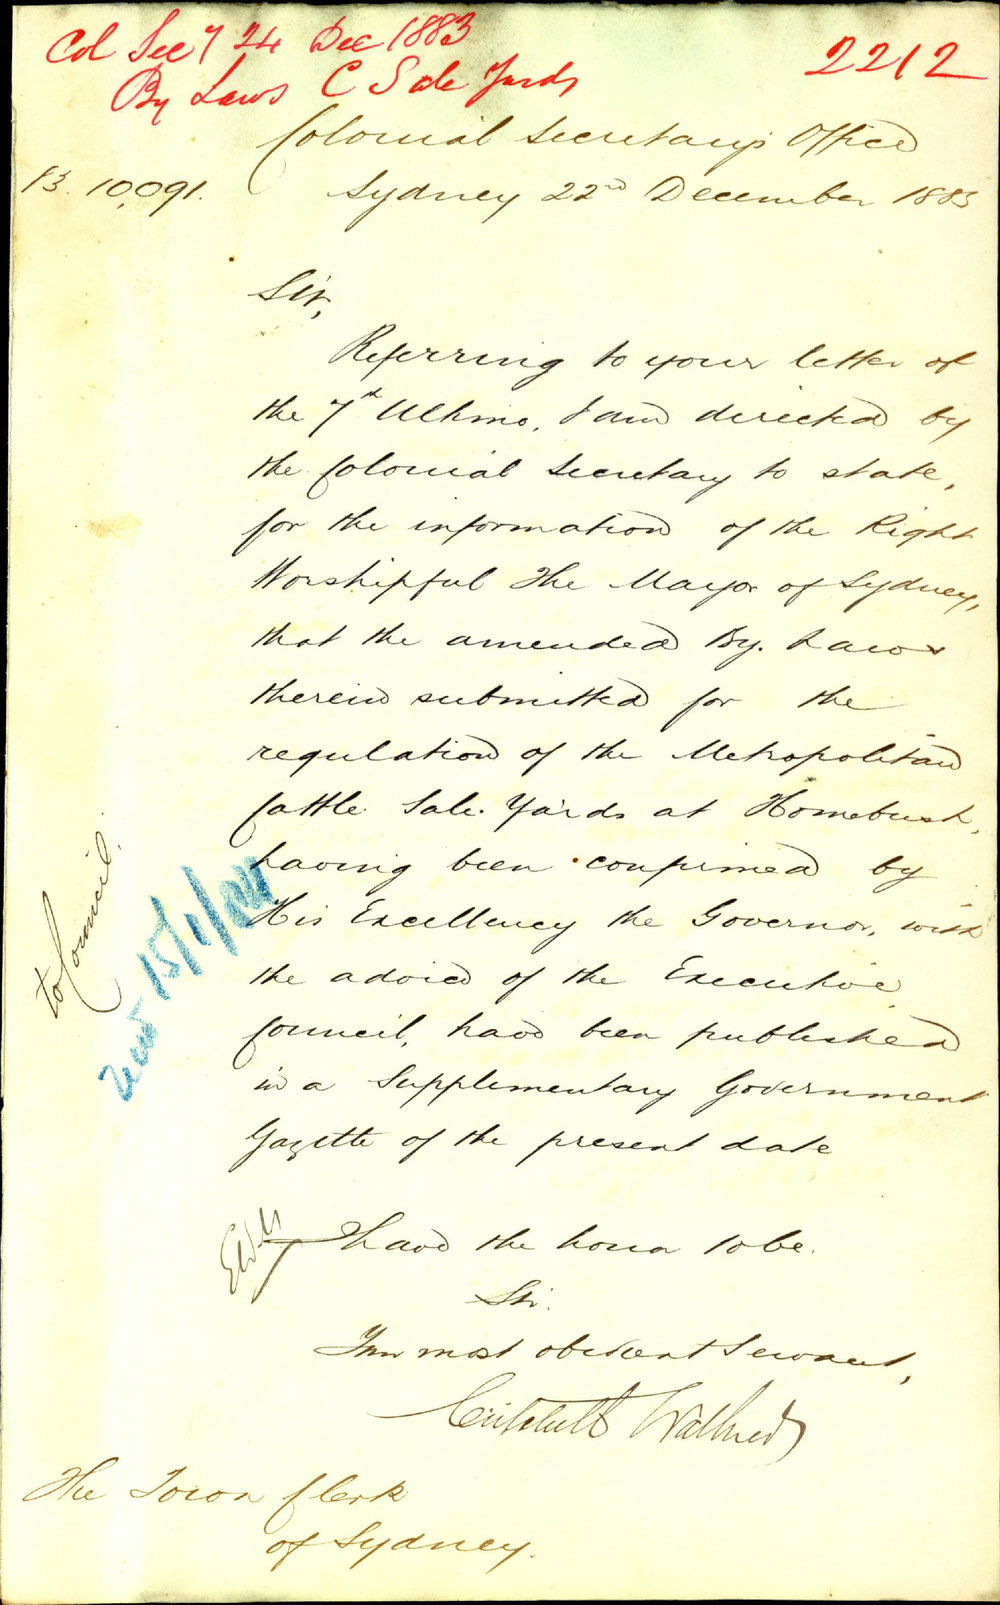 Col Secy 24 Dec 1883
2212
By Laws C Sale Yards
Colonial Secretary's Office
83. 10,091.
Sydney 22nd December 1883
Sir,
Referring to your letter of
the 7th Ultimo, I am directed by
the Colonial Secretary to state,
for the information of the Right
Worshipful The Mayor of Sydney,
that the amended By. Laws
therein submitted for the
regulation of the Metropolitan
Cattle Sale Yards at Homebush,
having been confirmed by
His Excellency the Governor, with
the advice of the Executive
Council, have been published
in a Supplementary Government
Gazette of the present date
to Council.
15/1/84
I have the honor to be.
Sir.
Your most obedient Servant,
Critchett Walker
The Town Clerk
of Sydney.